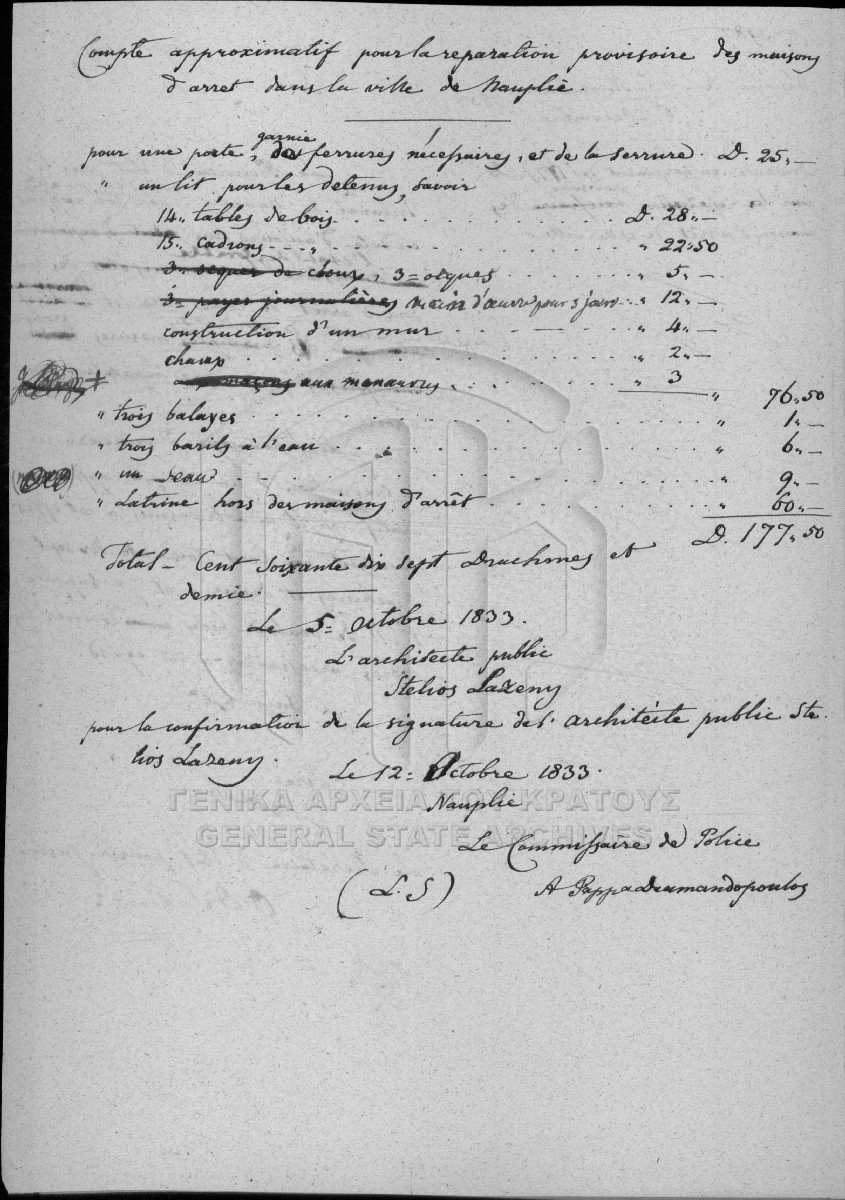 Compte approximatif pour la reparation provisoire des maisons
d'arret dans la ville de Nauplie.
garnie
pour une porte, des ferrures nécessaires, et de la serrure. D. 25,, —
" un lit pour les detenus, savoir
14,, tables de bois . . . . . . . . . D. 28,, —
15,, cadrons - - - " . . . . . . . . . " 22,,50
3,, ocques de cloux, 3 = ocques . . . . . . " 5,, —
3 = payes journalières main d'œuvre pour 3 jours . . " 12,, —
construction d'un mur . . . . . . . " 4,, —
chaux . . . . . . . . . . " 2,, —
aux manœuvres . . . . . . . " 3 " 76,,50
" trois balayes . . . . . . . . . . " 1,, —
" trois barils à l'eau . . . . . . . . . " 6,, —
" un seau . . . . . . . . . . " 9,, —
" Latrine hors des maisons d'arrêt . . . . . . " 60,, —
D. 177,,50
Total — Cent soixante dix sept Drachmes et
demie.
Le 5 = Octobre 1833.
L'architecte public
Stelios Lazeny
pour la confirmation de la signature de l'architécte public Ste-
lios Lazeny.
Le 12 = Octobre 1833.
Nauplie
ΓΕΝΙΚΑ ΑΡΧΕΙΑ ΤΟΥ ΚΡΑΤΟΥΣ
GENERAL STATE ARCHIVES
Le Commissaire de Police
(L. S) A PappaDiamandopoulos